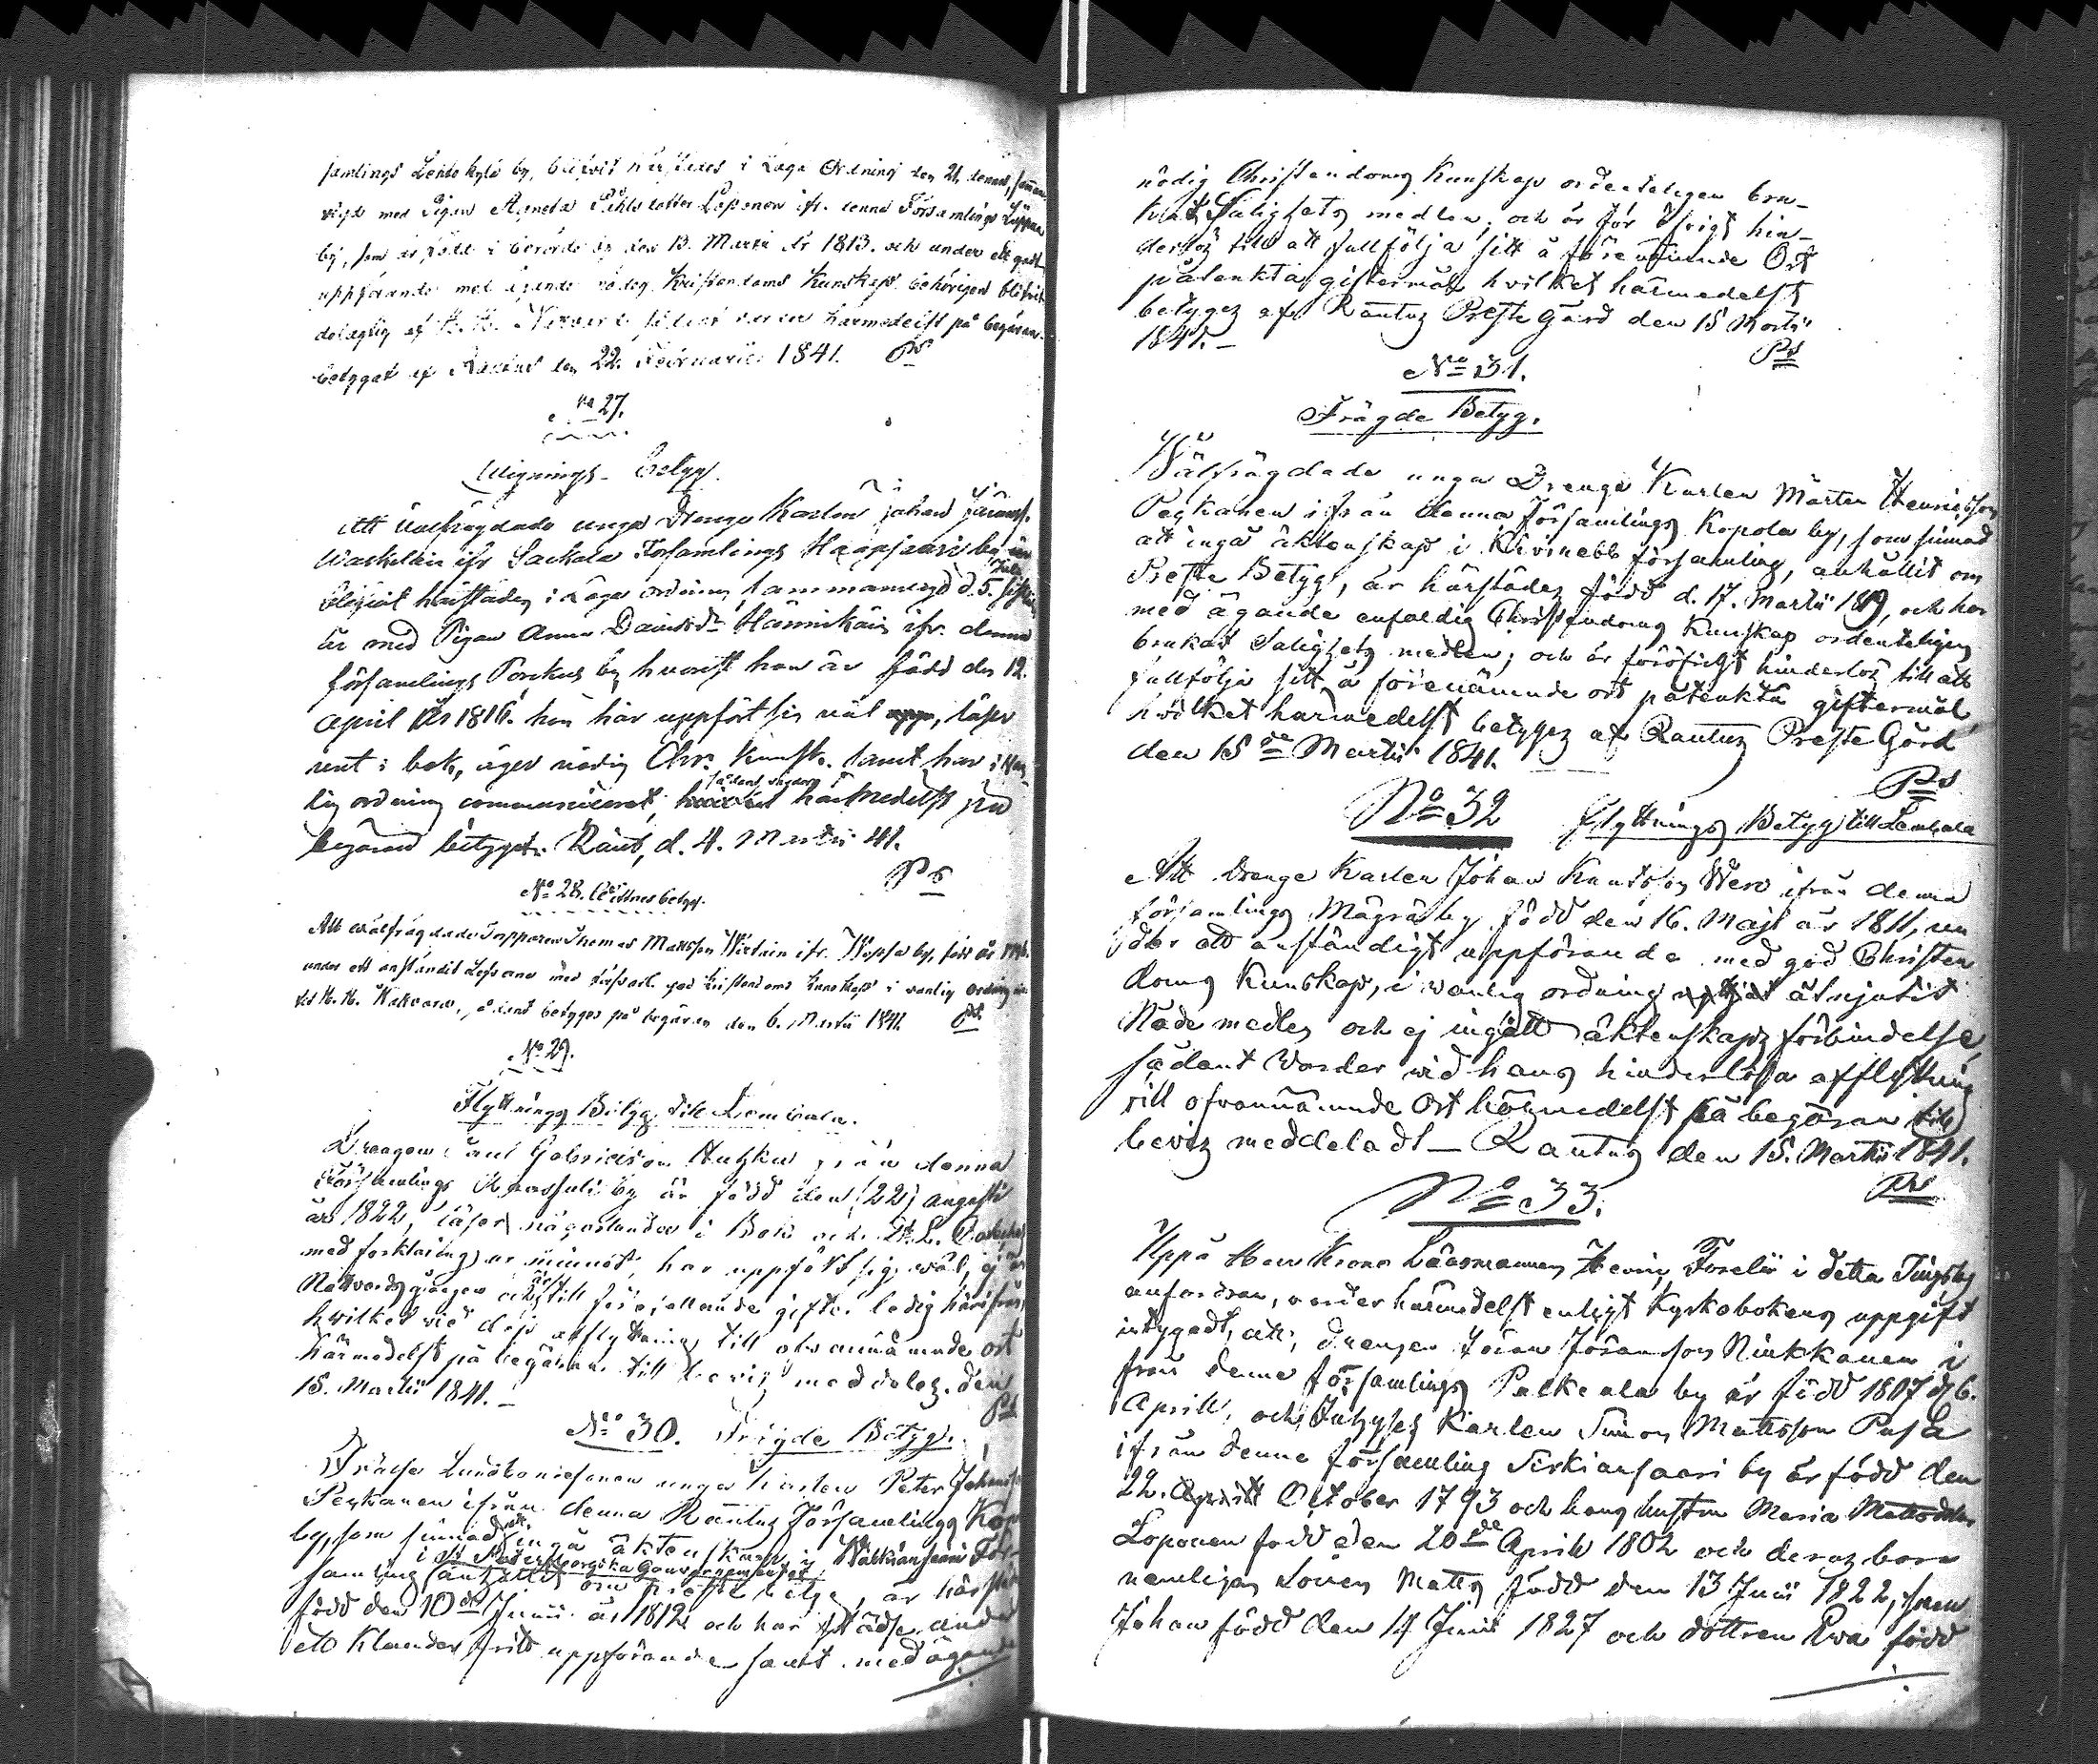 samlings Lentokylä by, blifvit härstädes i Laga Ordning den 21 denna, samman
vigd med Pigan Agneta Påhls dotter Loponen ifr. denna Församlings
by, som är född i berörde by den 13. Martii år 1813. och under ett godt
uppförande med ägande nödig Kristendoms Kunskap behörigen blifvit
delagtig af H. H. Nattvard, sådant varder härmedelst på begäran
betygat af Rautus den 22. Februarii 1841. Ps
No 27.
Wignings-Betyg.
Att välfrägdade unga Drenge Karlen Johan Jöranss.
ifr Sackola Församlings Haapsaari by, är
blifvit härstädes i Laga ordning sammanvigd d. 5. Julii
år med Pigan Anna Davidsdr Hännikäin ifr. denna
församlings Porckus by, hvarest hon är född den 12.
April år 1816. hon har uppfört sig väl, läser
rent i bok, äger nödig Chr. Kunsk. samt har i
lig ordning communicerat, sådant varder härmedelst på
begäran betygat. Raut, d. 4. Martii 41.
Ps
No 28. betyg.
Att välfrägdade Thomas Mattsson ifr. by, född år
under ett anständit Lefverne med god Kristendoms Kunskap i vanlig ordning
vid H. H. Nattvard, sådant betyges på begäran den 6. Martii 1841. Ps
No 29.
Flyttnings Betyg till Lembala.
Drengen Paul Gabrielsson från denna
Församlings by är född den (22) Augusti
år 1822, läser någorlunda i Bok och D. L.
med forklaring ur minnet, har uppfört sig väl, är
Nattvards gången och till gifte ledig härifrån,
hwilket vid dess afflyttning till ofvannämnde ort
härmedelst på begäran till bevis meddelez. den
15. Martii 1841. —
Ps
No 30. Frägde Betyg.
unga karlen Peter Johansson
Peykanen ifrån denna Rautus Församlings
by, som sinnad att ingå äktenskap i Walkiansaari För-
i St Petersburgska Gouvernementet
samling anhållit om preste betyg, är härst
född den 10de Junii år 1812 och har städse under
ett klanderfritt uppförande samt med ägande
nödig Christendoms Kunskap ordentligen bru-
kat Salighets medlen, och är för öfrigt hin-
derlös till att fullfölja sitt å förenämnde Ort
påtenkta giftermål hvilket härmedelst
betygez af Rautus Preste Gård den 15 Martii
1841. —
Ps
No 31.
Frägde Betyg.
Wälfrägdade unga Drenge Karlen Mårten Henricsson
Peykanen ifrån denna Församlings Kopola by, som sinnad
att ingå äktenskap i Kivinebb församling, anhållit om
Preste Betyg, är härstädes född d. 17. Martii 1819, och har
med ägande enfaldig Christendoms Kunskap ordenteligen
brukat Salighets medlen; och är föröfrigt hinderlös till att
fullfölja sitt å förenämnde ort påtenkta giftermål,
hvilket härmedelst betygez af Rautus Preste Gård
den 15de Martii 1841.
Ps
No 32 Flyttnings Betyg till Lembala
Att Drenge Karlen Johan Knutsson Wero ifrån denna
församlings Mägrä by född den 16. Maji år 1811, un
der ett anständigt uppförande med god Christen
doms Kunskap, i vanlig ordning åtnjutit
Nåde medlen och ej ingått äktenskaps förbindelse,
sådant Varder wid hans hinderlösa afflyttning
till ofvannämnde Ort härmedelst på begäran till
bevis meddeladt — Rautus den 15. Martii 1841.
Ps
No 33.
Uppå Herr Krono Länsmannen Henric Forelii i detta Tingslag
anfordran, varder härmedelst enligt Kyrkobokens uppgift
intygadt, att; drengen Jöran Jöransson Ninkkanen i
från denne församlings Palkeala by är född 1807 d. 6.
Aprill, och Karlen Simon Mattsson Pusa
ifrån denne församling Sirkiansaari by är född den
22. October 1793 och hans hustru Maria Mattsdotter
Loponen född den 20de Aprill 1802 och deras barn
nemligen sonen Matts född den 13 Junii 1822, sonen
Johan född den 14 Junii 1827 och dottren Eva född